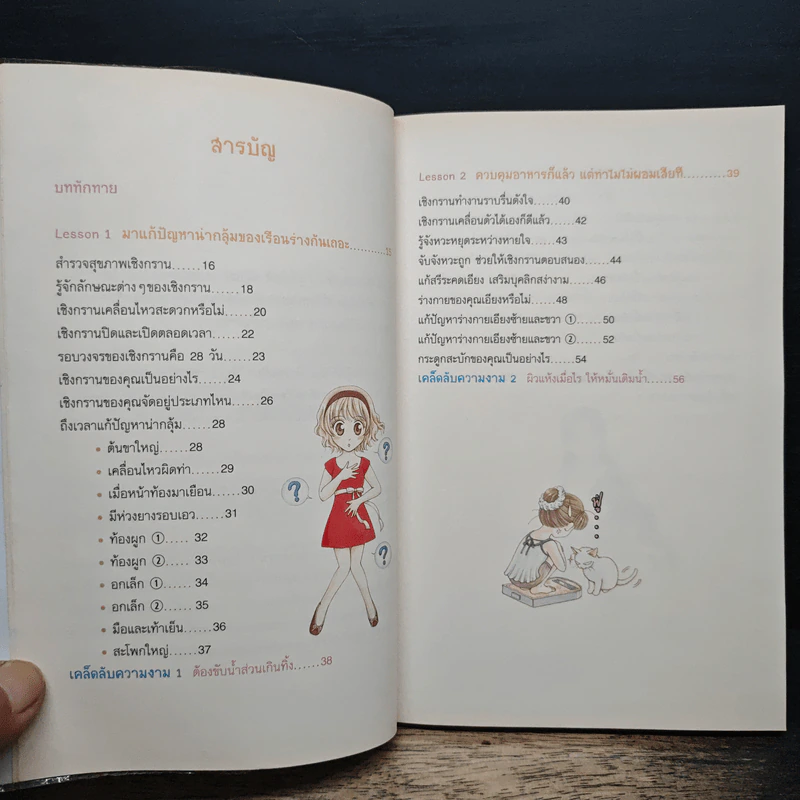 สารบัญ
บททักทาย
Lesson 1 มาแก้ปัญหาน่ากลุ้มของเรือนร่างกันเถอะ..........15
สำรวจสุขภาพเชิงกราน......16
รู้จักลักษณะต่างๆของเชิงกราน......18
เชิงกรานเคลื่อนไหวสะดวกหรือไม่......20
เชิงกรานปิดและเปิดตลอดเวลา......22
รอบวงจรของเชิงกรานคือ 28 วัน......23
เชิงกรานของคุณเป็นอย่างไร......24
เชิงกรานของคุณจัดอยู่ประเภทไหน......26
ถึงเวลาแก้ปัญหาน่ากลุ้ม......28
• ต้นขาใหญ่......28
• เคลื่อนไหวผิดท่า......29
• เมื่อหน้าท้องมาเยือน......30
• มีห่วงยางรอบเอว......31
• ท้องผูก ①...... 32
• ท้องผูก ②...... 33
• อกเล็ก ①...... 34
• อกเล็ก ②...... 35
• มือและเท้าเย็น......36
• สะโพกใหญ่......37
เคล็ดลับความงาม 1 ต้องขับน้ำส่วนเกินทิ้ง......38
?
?
?
Lesson 2 ควบคุมอาหารก็แล้ว แต่ทำไมไม่ผอมเสียที..........39
เชิงกรานทำงานราบรื่นดังใจ......40
เชิงกรานเคลื่อนตัวได้เองก็ดีแล้ว......42
รู้จังหวะหยุดระหว่างหายใจ......43
จับจังหวะถูก ช่วยให้เชิงกรานตอบสนอง......44
แก้สรีระคดเอียง เสริมบุคลิกสง่างาม......46
ร่างกายของคุณเอียงหรือไม่......48
แก้ปัญหาร่างกายเอียงซ้ายและขวา ①......50
แก้ปัญหาร่างกายเอียงซ้ายและขวา ②......52
กระดูกสะบักของคุณเป็นอย่างไร......54
เคล็ดลับความงาม 2 ผิวแห้งเมื่อไร ให้หมั่นเติมน้ำ......56